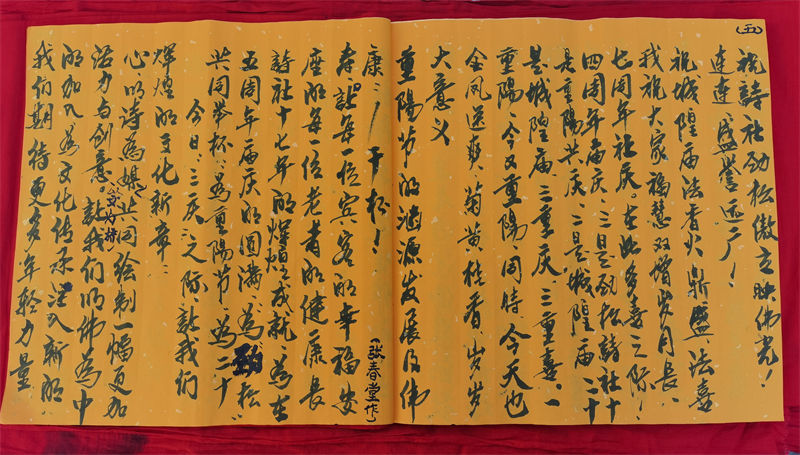 我们期待更多年轻力量
的加入为文化传承注入新的
活力与创意。让我们以佛为中
心、以诗为媒、共同绘制一幅更加
辉煌的文化新章：
今日、三庆之际、让我们
共同举杯、为重陽节、为二十
五周年庙庆的圆满、为勁松
詩社十七年的辉煌成就、为在
座的每一位老者的健康長
寿、每一位宾客的幸福安
康、干杯！
(张春堂作)
重陽节的渊源发展及伟
大意义
金风送爽、菊黄桂香、岁岁
重陽、今又重陽同時、今天也
是城隍庙、三重庆、三重喜、一
是重陽共庆、二是城隍庙二十
四周年庙庆、三是勁松詩社十
七周年社庆。在此多喜之际！
我祝大家福慧双增岁月長、
祝城隍庙法香火鼎盛、法喜
連連 盛譽远广！
祝詩社勁松傲立映佛光！
(五)